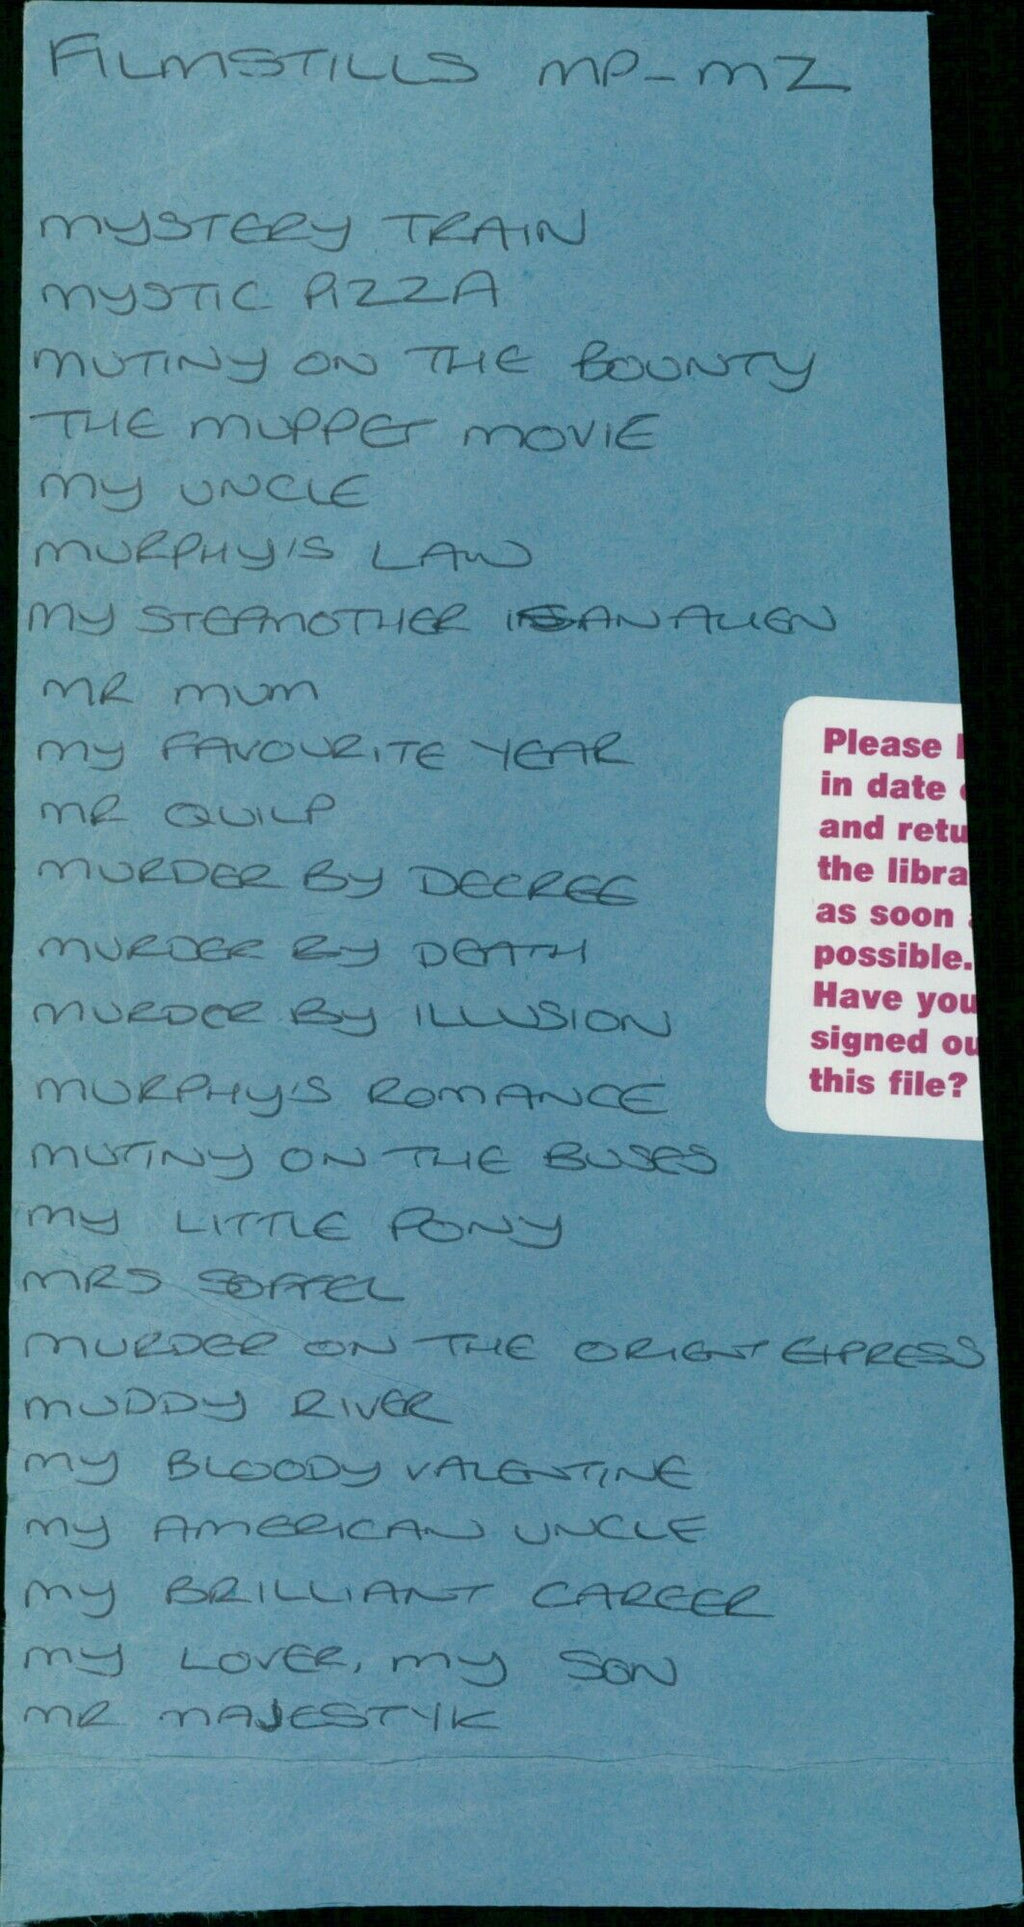 FILMSTILLS MP-MZ
MYSTERY TRAIN
MYSTIC PIZZA
MUTINY ON THE BOUNTY
THE MUPPET MOVIE
MY UNCLE
MURPHY'S LAW
MY STEPMOTHER IS AN ALIEN
MR MUM
MY FAVOURITE YEAR
MR QUILP
MURDER BY DECREE
MURDER BY DEATH
MURDER BY ILLUSION
MURPHY'S ROMANCE
MUTINY ON THE BUSES
MY LITTLE PONY
MRS SOFFEL
MURDER ON THE ORIENT EXPRESS
MUDDY RIVER
MY BLOODY VALENTINE
MY AMERICAN UNCLE
MY BRILLIANT CAREER
MY LOVER, MY SON
MR MAJESTYK
Please
in date
and retu
the libra
as soon
possible.
Have you
signed ou
this file?